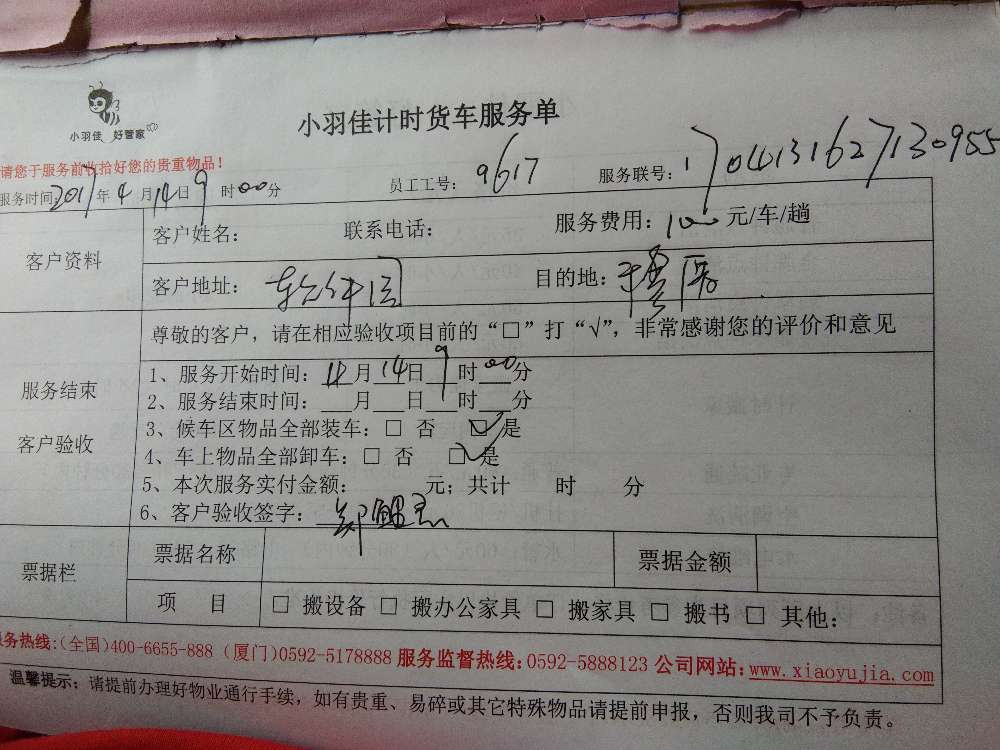 小羽佳 好管家
小羽佳计时货车服务单
请您于服务前收拾好您的贵重物品！
服务时间:2017年4月14日9时00分 员工工号：9617 服务联号：170413162713095
客户资料
客户姓名： 联系电话： 服务费用：100元/车/趟
客户地址： 目的地：
尊敬的客户，请在相应验收项目前的“□”打“√”，非常感谢您的评价和意见
服务结束
客户验收
1、服务开始时间：4月14日9时00分
2、服务结束时间：___月___日___时___分
3、候车区物品全部装车：□ 否 ☑ 是
4、车上物品全部卸车：□ 否 ☑ 是
5、本次服务实付金额： 元；共计 时 分
6、客户验收签字：
票据栏
票据名称 票据金额
项 目 □ 搬设备 □ 搬办公家具 □ 搬家具 □ 搬书 □ 其他：
服务热线:(全国)400-6655-888 (厦门)0592-5178888 服务监督热线：0592-5888123 公司网站：www.xiaoyujia.com
温馨提示：请提前办理好物业通行手续，如有贵重、易碎或其它特殊物品请提前申报，否则我司不予负责。